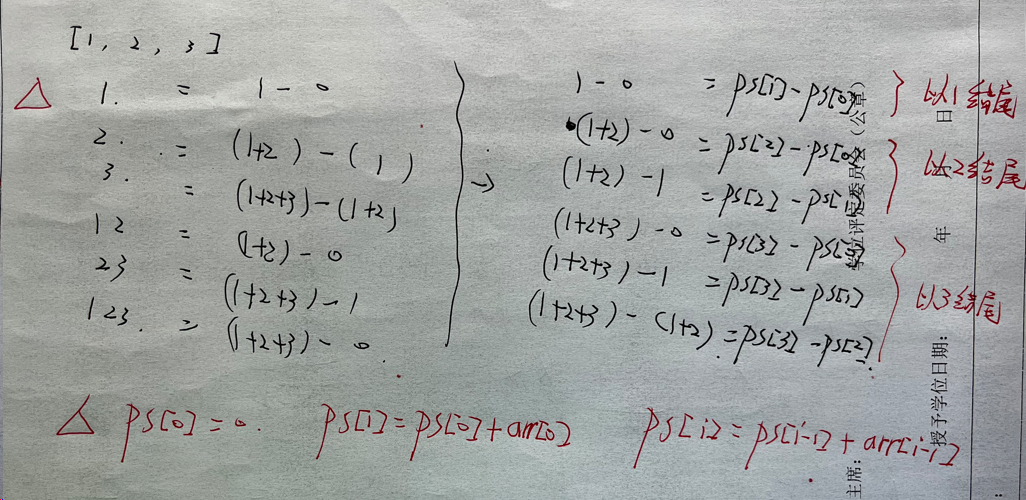 [1, 2, 3]
△ 1. = 1 - 0
2. = (1+2) - (1)
3. = (1+2+3) - (1+2)
12 = (1+2) - 0
23 = (1+2+3) - 1
123. = (1+2+3) - 0.
→
1 - 0 = ps[1] - ps[0] } 以1结尾
(1+2) - 0 = ps[2] - ps[0]
(1+2) - 1 = ps[2] - ps[1] } 以2结尾
(1+2+3) - 0 = ps[3] - ps[0]
(1+2+3) - 1 = ps[3] - ps[1] } 以3结尾
(1+2+3) - (1+2) = ps[3] - ps[2]
△ ps[0] = 0. ps[1] = ps[0] + arr[0] ps[i] = ps[i-1] + arr[i-1]
学位评定委员会（公章）
主席：
授予学位日期： 年 月 日